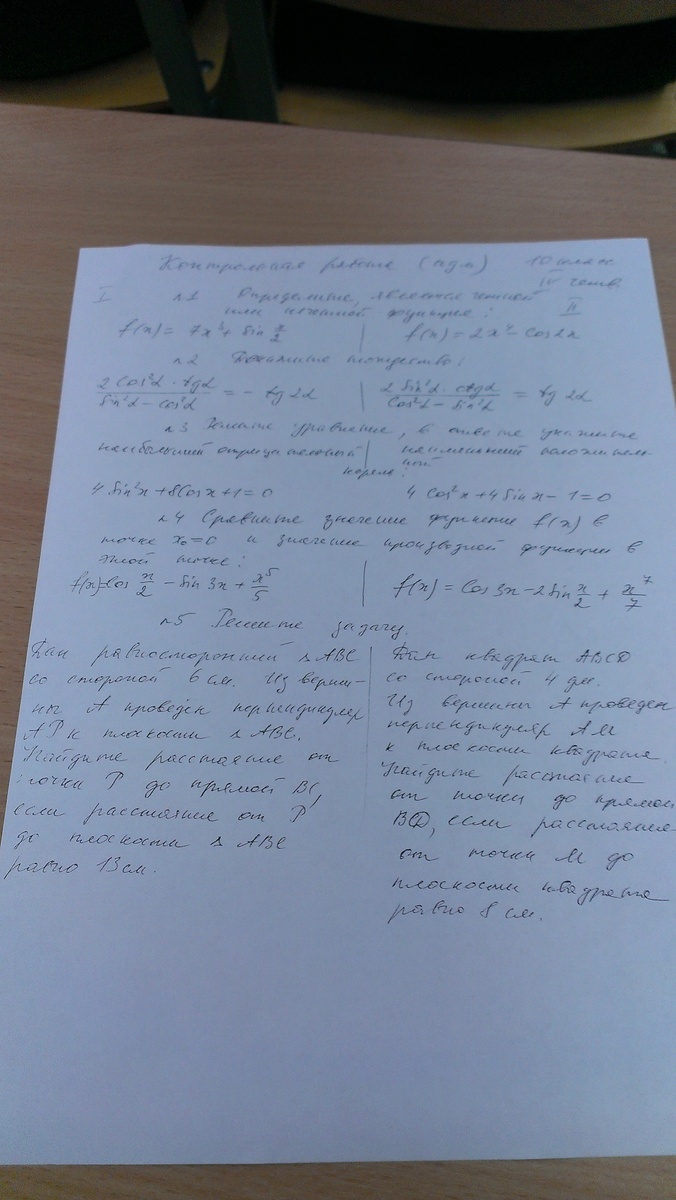 Контрольная работа (пдм) 10 класс
IV четв.
I №1 Определите, является четной II
или нечетной функция:
f(x) = 7x³ + sin x/2 | f(x) = 2x⁴ - cos 2x
№2 Докажите тождество:
2cos²α · tgα / sin²α - cos²α = - tg 2α | 2 sin²α · ctgα / cos²α - sin²α = tg 2α
№3 Решите уравнение, в ответе укажите
наибольший отрицательный | наименьший положитель-
ный
корень:
4 sin²x + 8cos x + 1 = 0 4 cos²x + 4 sin x - 1 = 0
№4 Сравните значение функции f(x) в
точке x₀ = 0 и значение производной функции в
этой точке:
f(x) = cos x/2 - sin 3x + x⁵/5 | f(x) = cos 3x - 2 sin x/2 + x⁷/7
№5 Решите задачу.
Дан равносторонний △ ABC
со стороной 6 см. Из верши-
ны A проведён перпендикуляр
AP к плоскости △ ABC.
Найдите расстояние от
точки P до прямой BC,
если расстояние от P
до плоскости △ ABC
равно 13 см.
Дан квадрат ABCD
со стороной 4 дм.
Из вершины A проведен
перпендикуляр AM
к плоскости квадрата.
Найдите расстояние
от точки до прямой
BD, если расстояние
от точки M до
плоскости квадрата
равно 8 см.